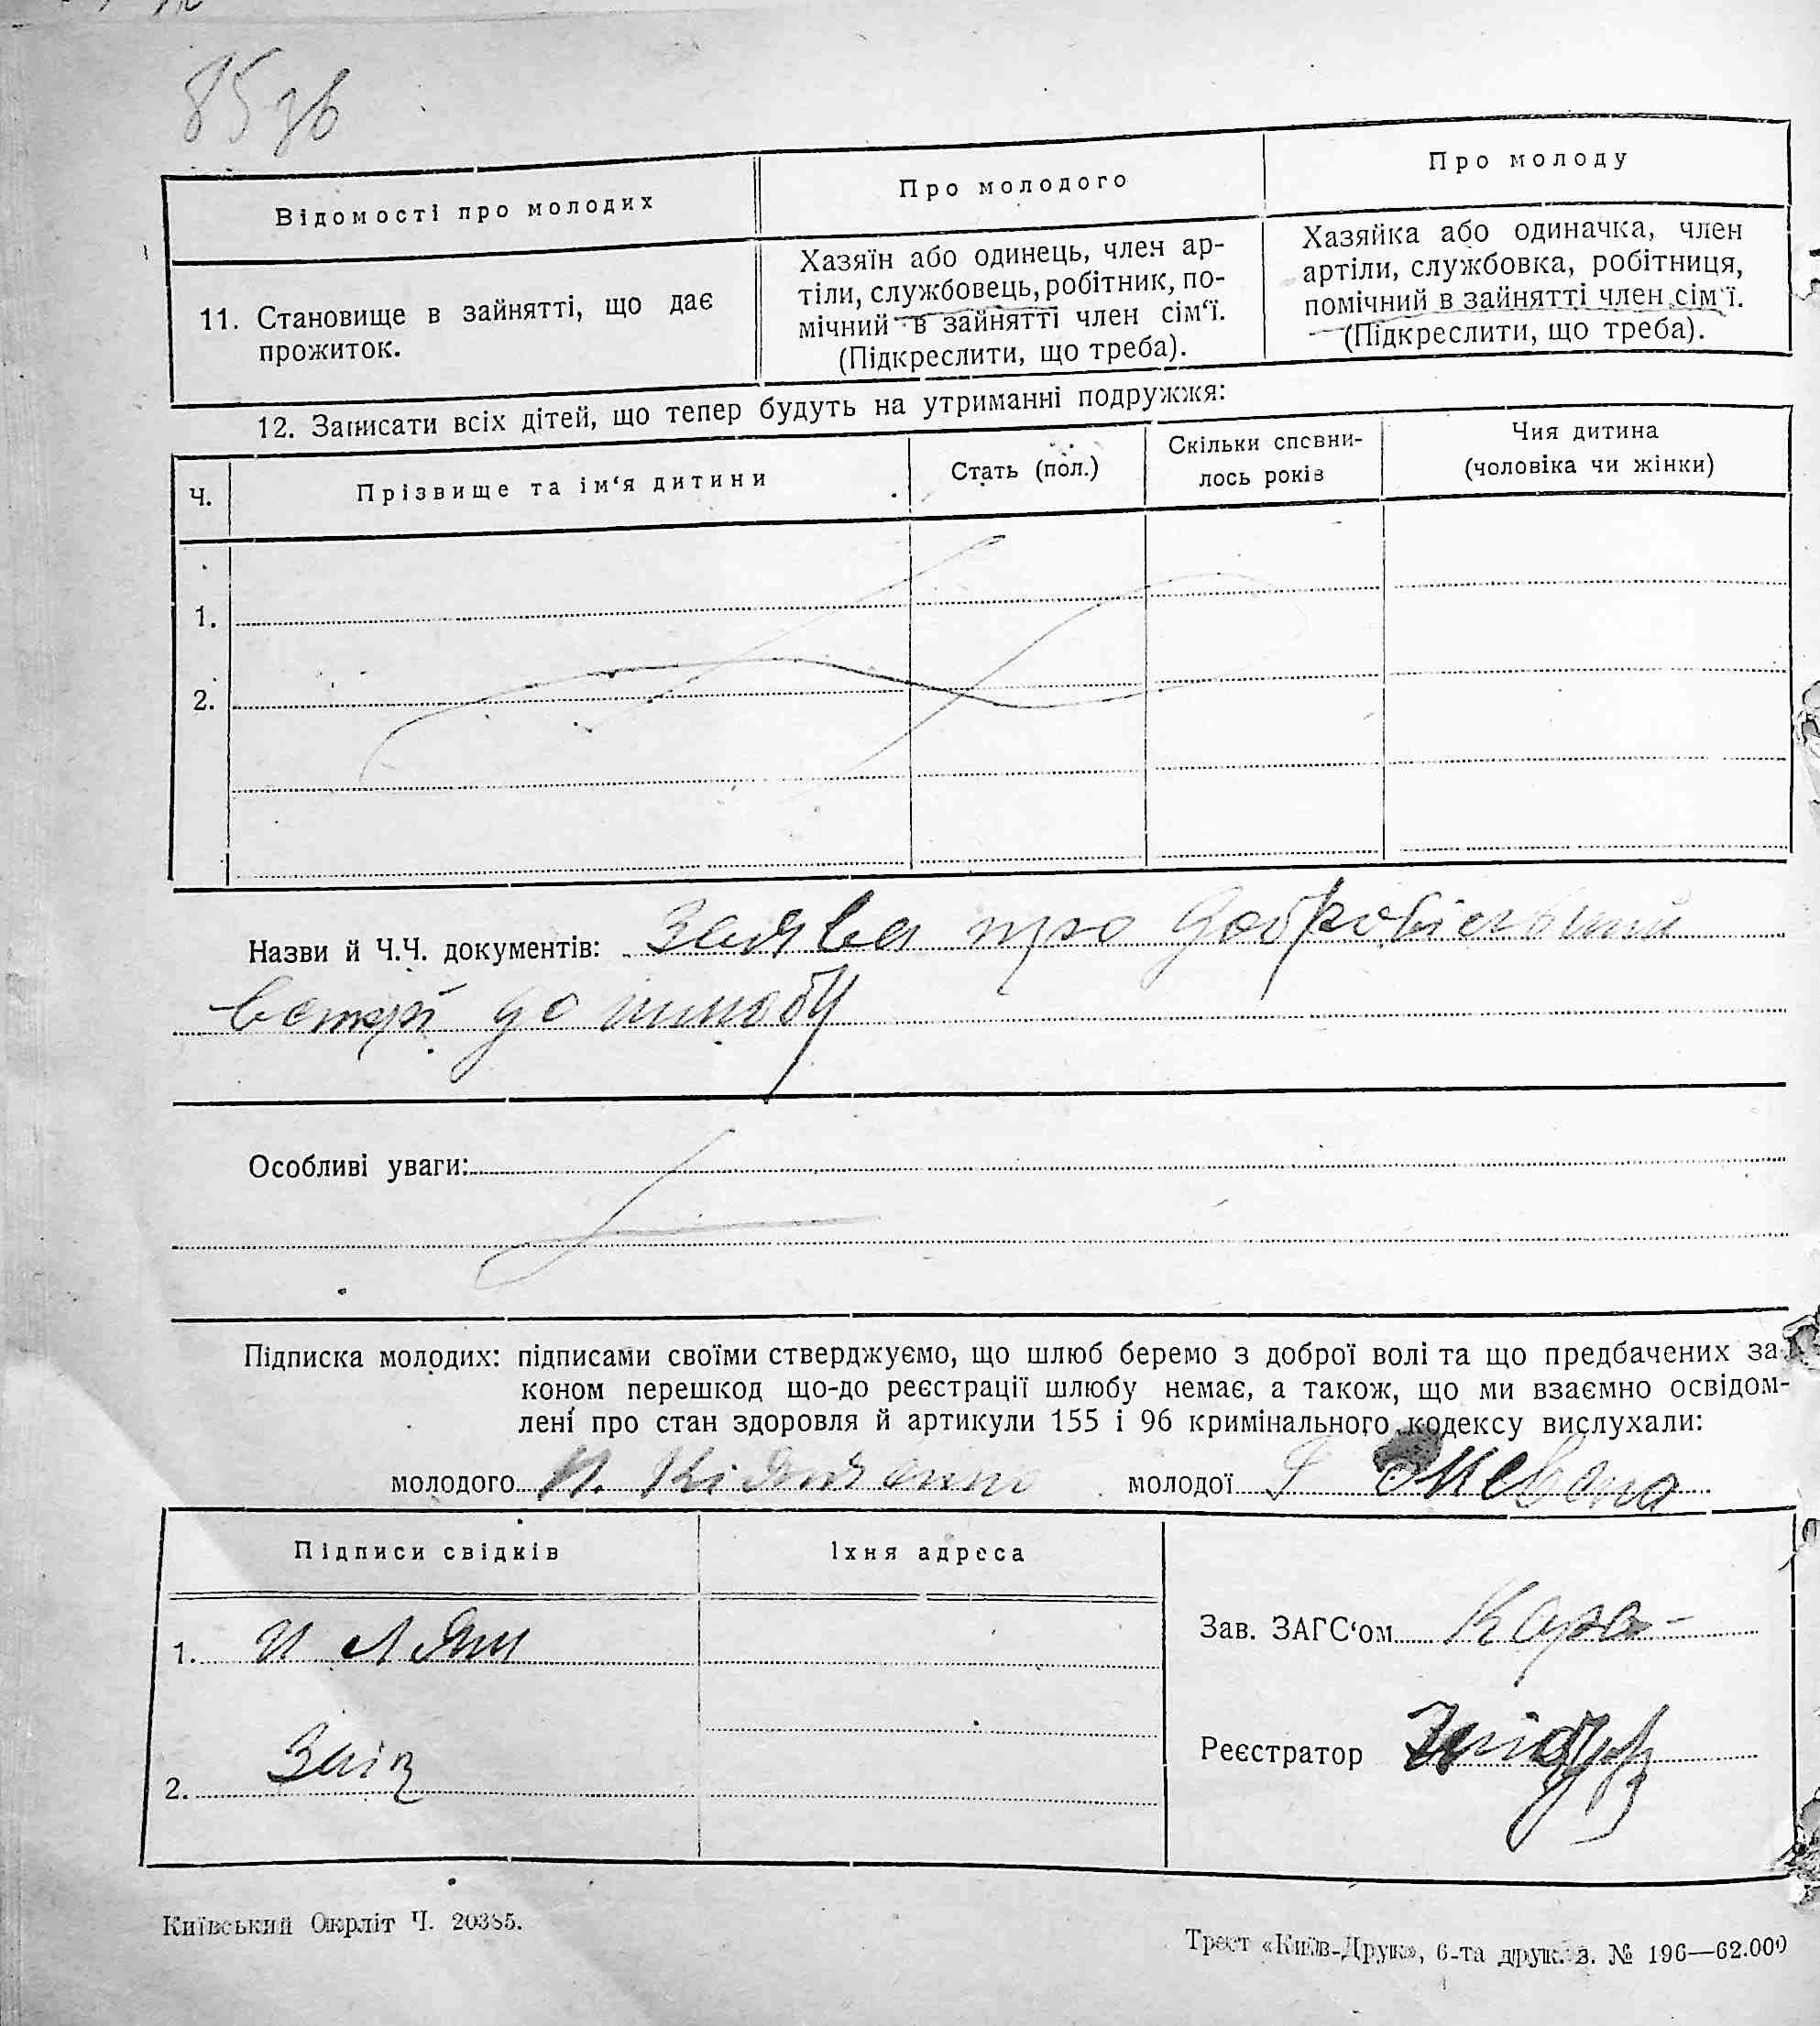 85 зв
Відомості про молодих
Про молодого
Про молоду
11. Становище в зайнятті, що дає
прожиток.
Хазяїн або одинець, член ар-
тіли, службовець, робітник, по-
мічний в зайнятті член сім‘ї.
(Підкреслити, що треба).
Хазяйка або одиначка, член
артіли, службовка, робітниця,
помічний в зайнятті член сім‘ї.
(Підкреслити, що треба).
12. Записати всіх дітей, що тепер будуть на утриманні подружжя:
Ч.
Прізвище та ім‘я дитини
Стать (пол.)
Скільки сповни-
лось років
Чия дитина
(чоловіка чи жінки)
1.
2.
Назви й Ч.Ч. документів: Заява про добровільний
вступ до шлюбу
Особливі уваги:
Підписка молодих: підписами своїми стверджуємо, що шлюб беремо з доброї волі та що предбачених за-
коном перешкод що-до реєстрації шлюбу немає, а також, що ми взаємно освідом-
лені про стан здоровля й артикули 155 і 96 кримінального кодексу вислухали:
молодого молодої
Підписи свідків
Їхня адреса
1.
2. Заїц
Зав. ЗАГС‘ом
Реєстратор
Київський Окрліт Ч. 20385.
Трест «Київ-Друк», 6-та друк. З. № 196—62.000